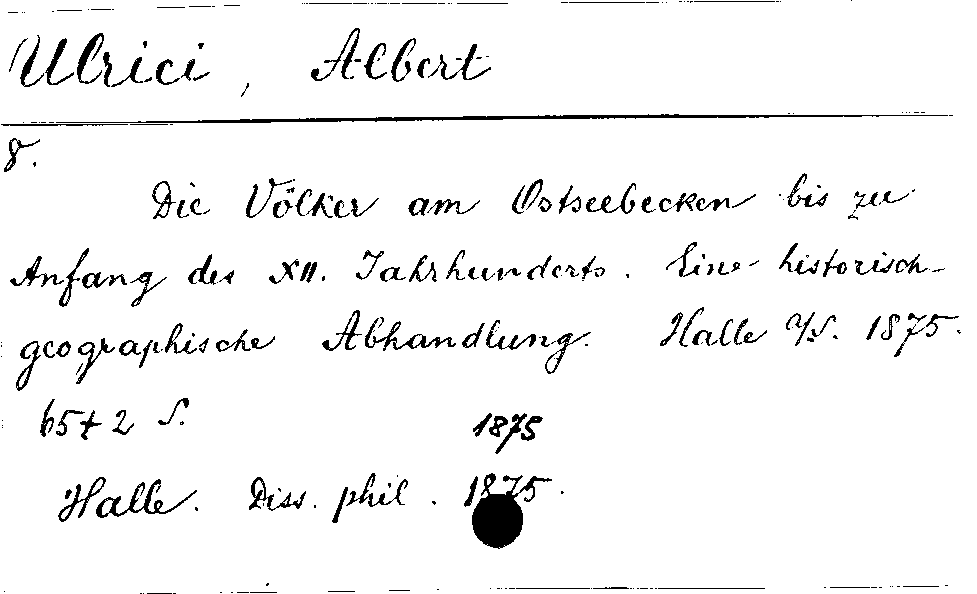 Ulrici, Albert
8.
Die Völker am Ostseebecken bis zu
Anfang des XII. Jahrhunderts. Eine historisch-
geographische Abhandlung. Halle a/S. 1875.
65+2 S.
1875
Halle. Diss. phil. 1875.